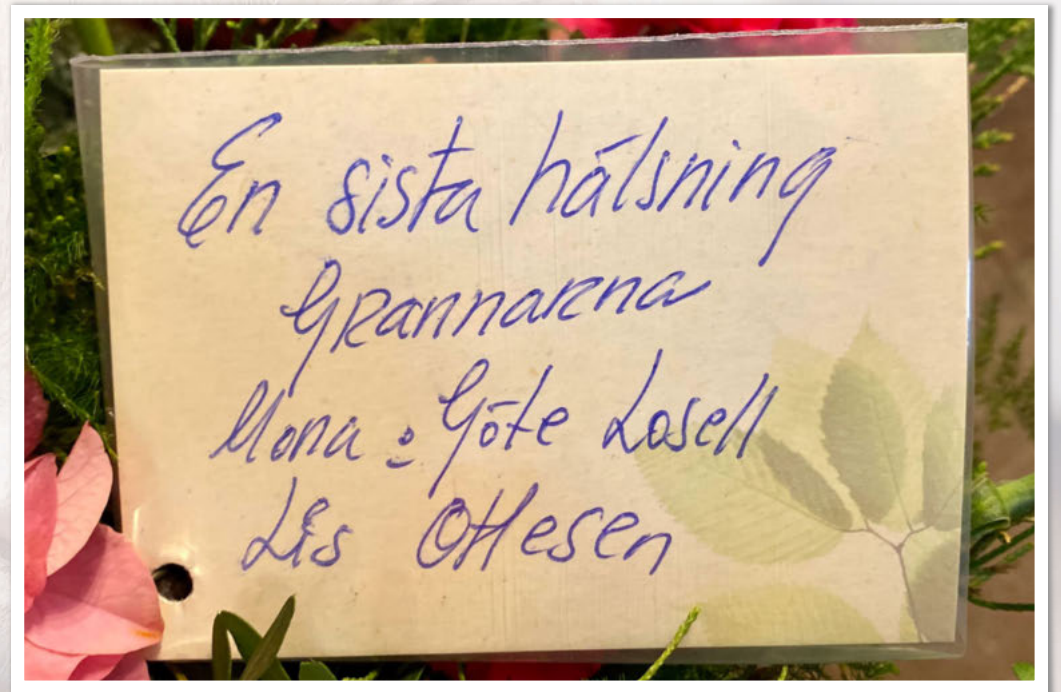 En sista hälsning
Grannarna
Mona o Göte Losell
Lis Ottesen